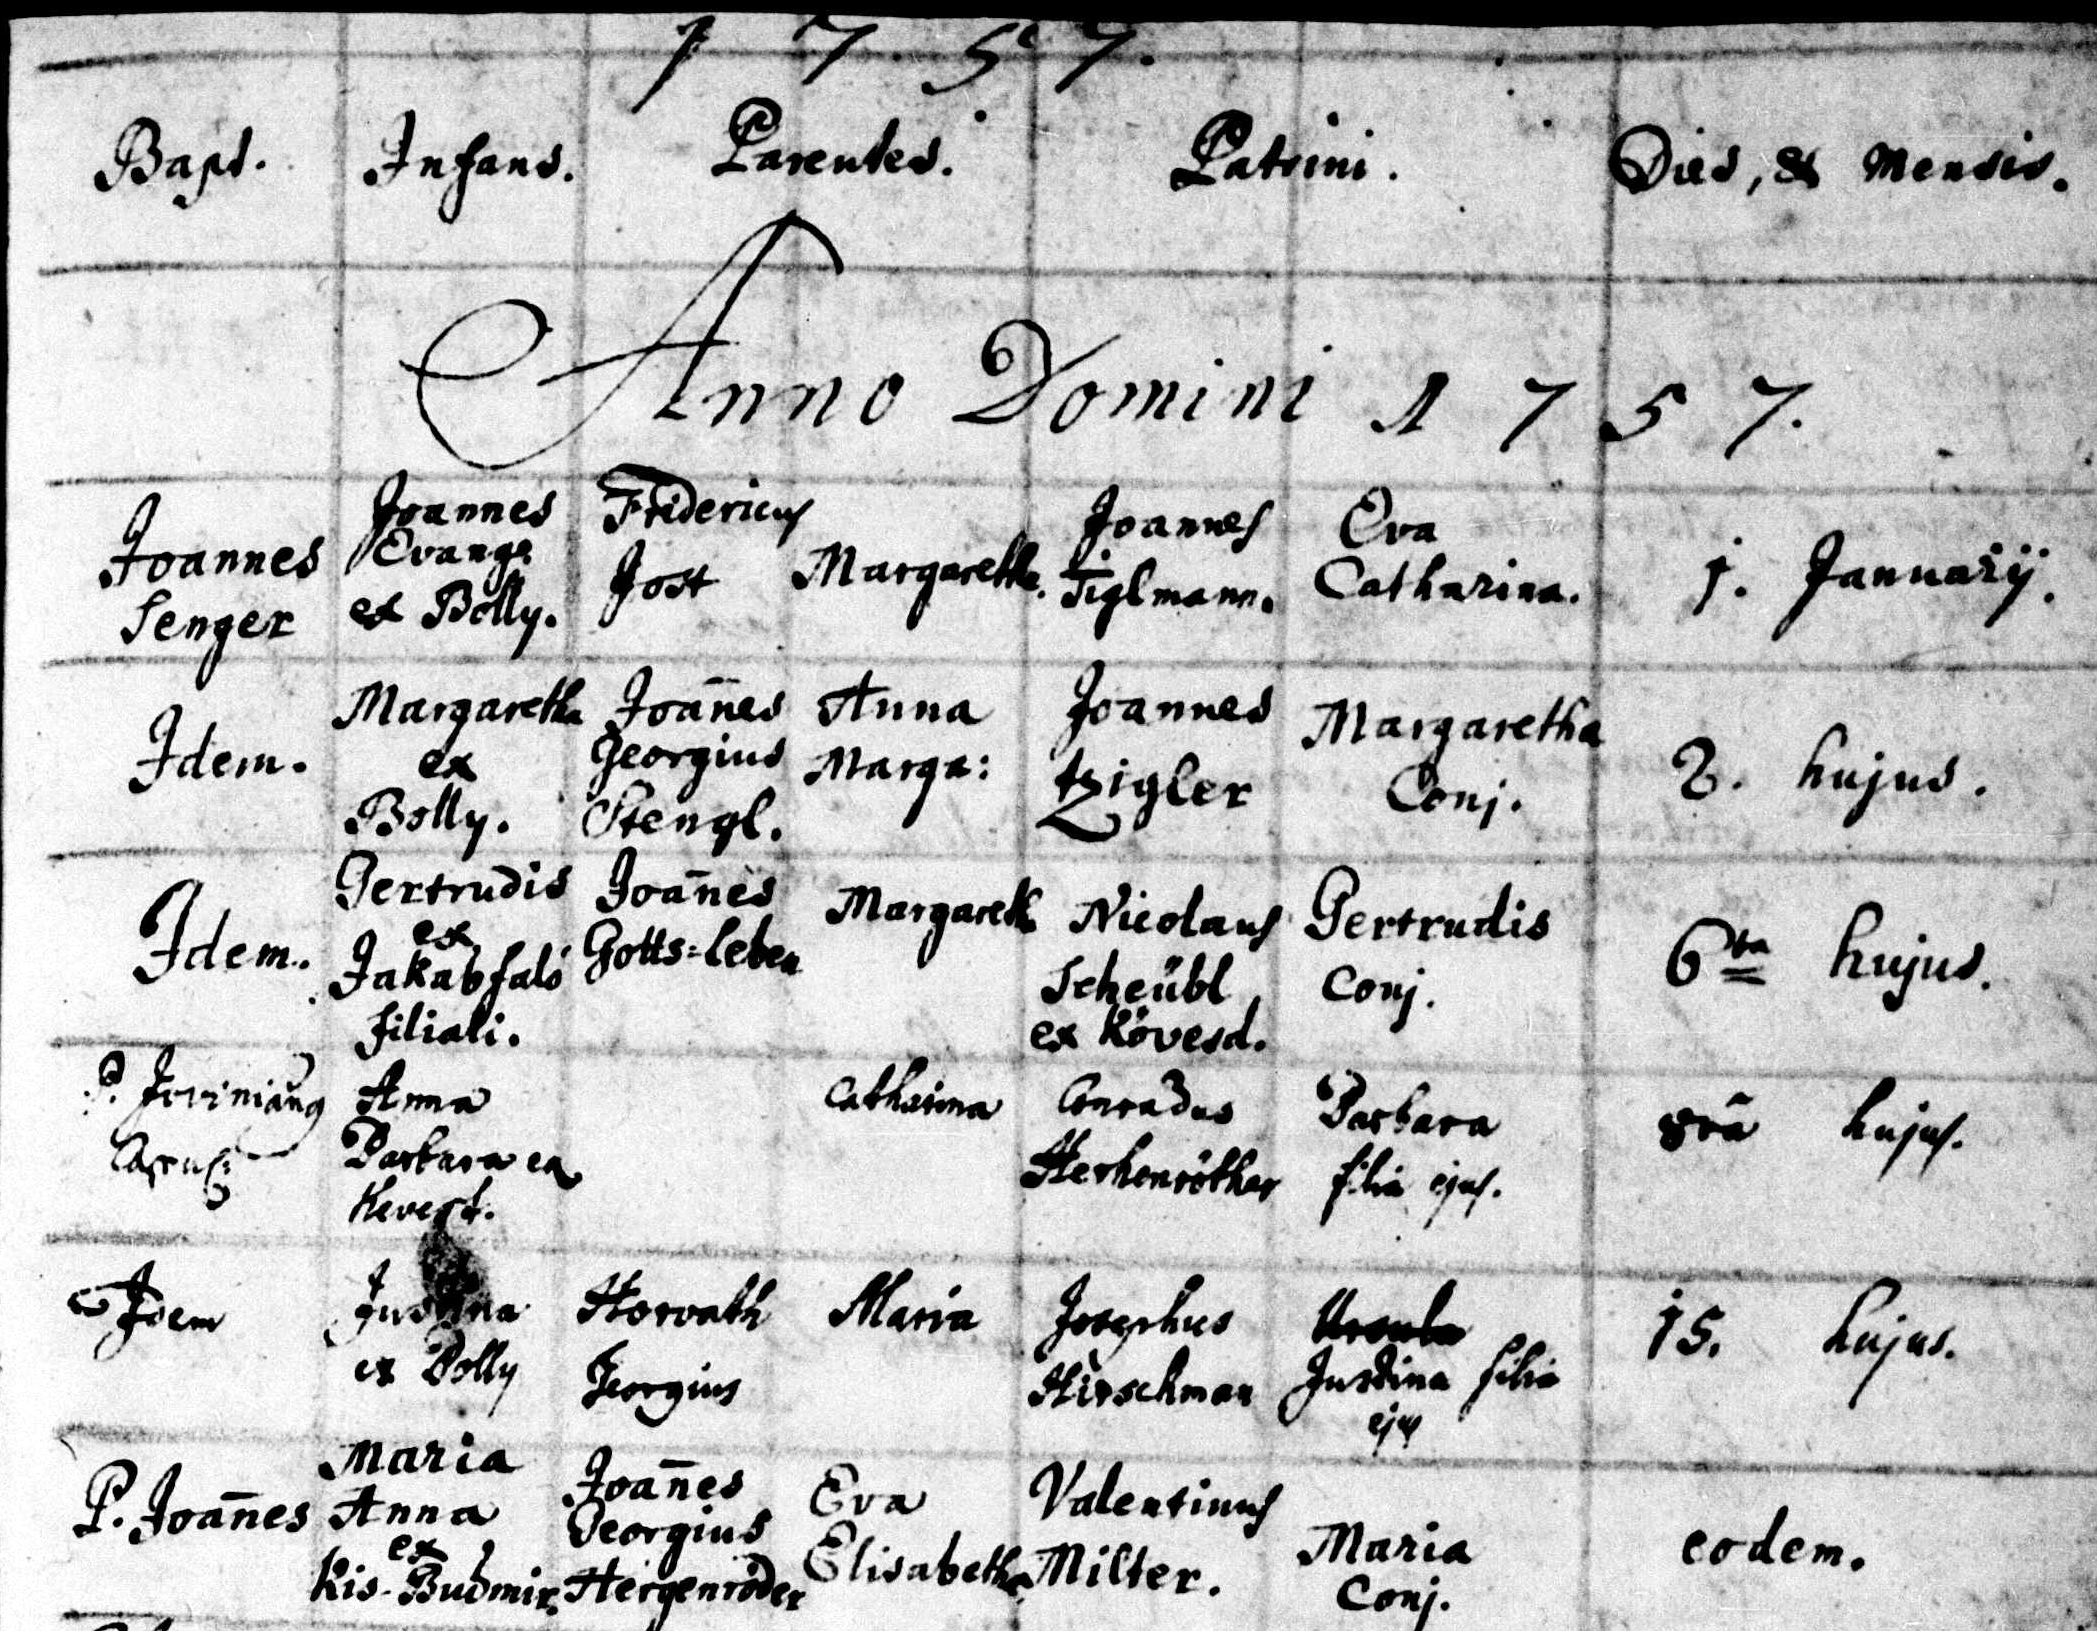 1 7 5 7.
Bapt. Infans. Parentes. Patrini. Dies, & Mensis.
Anno Domini 1757.
Joannes Senger
Joannes
Evang:
ex Bolly.
Fridericus
Jost
Margaretha.
Joannes
Tiglmann.
Eva
Catharina.
1. Januarij.
Idem.
Margaretha
ex
Bolly.
Joan̄es
Georgius
Stengl.
Anna
Marga:
Joannes
tzigler
Margaretha
Conj.
2. hujus.
Idem.
Gertrudis
ex
Jakabfalo
filiali.
Joan̄es
Gotts=leben
Margareth
Nicolaus
Scheübl
ex Kövesd.
Gertrudis
Conj.
6ta hujus.
P. Jovinianus
Anna
Barbara ex
Kevesd.
Catharina
Conradus
Herhenröther
Barbara
filia ejus.
8va hujus.
Idem
Justina
ex Bolly
Horvath
Georgius
Maria
Josephus
Hirschman
Ursula
Justina filia
ejus
15. hujus.
P. Joan̄es
Maria
Anna
ex
Kis-Budmir.
Joan̄es
Georgius
Hergenröder
Eva
Elisabetha.
Valentinus
Milter.
Maria
Conj.
eodem.